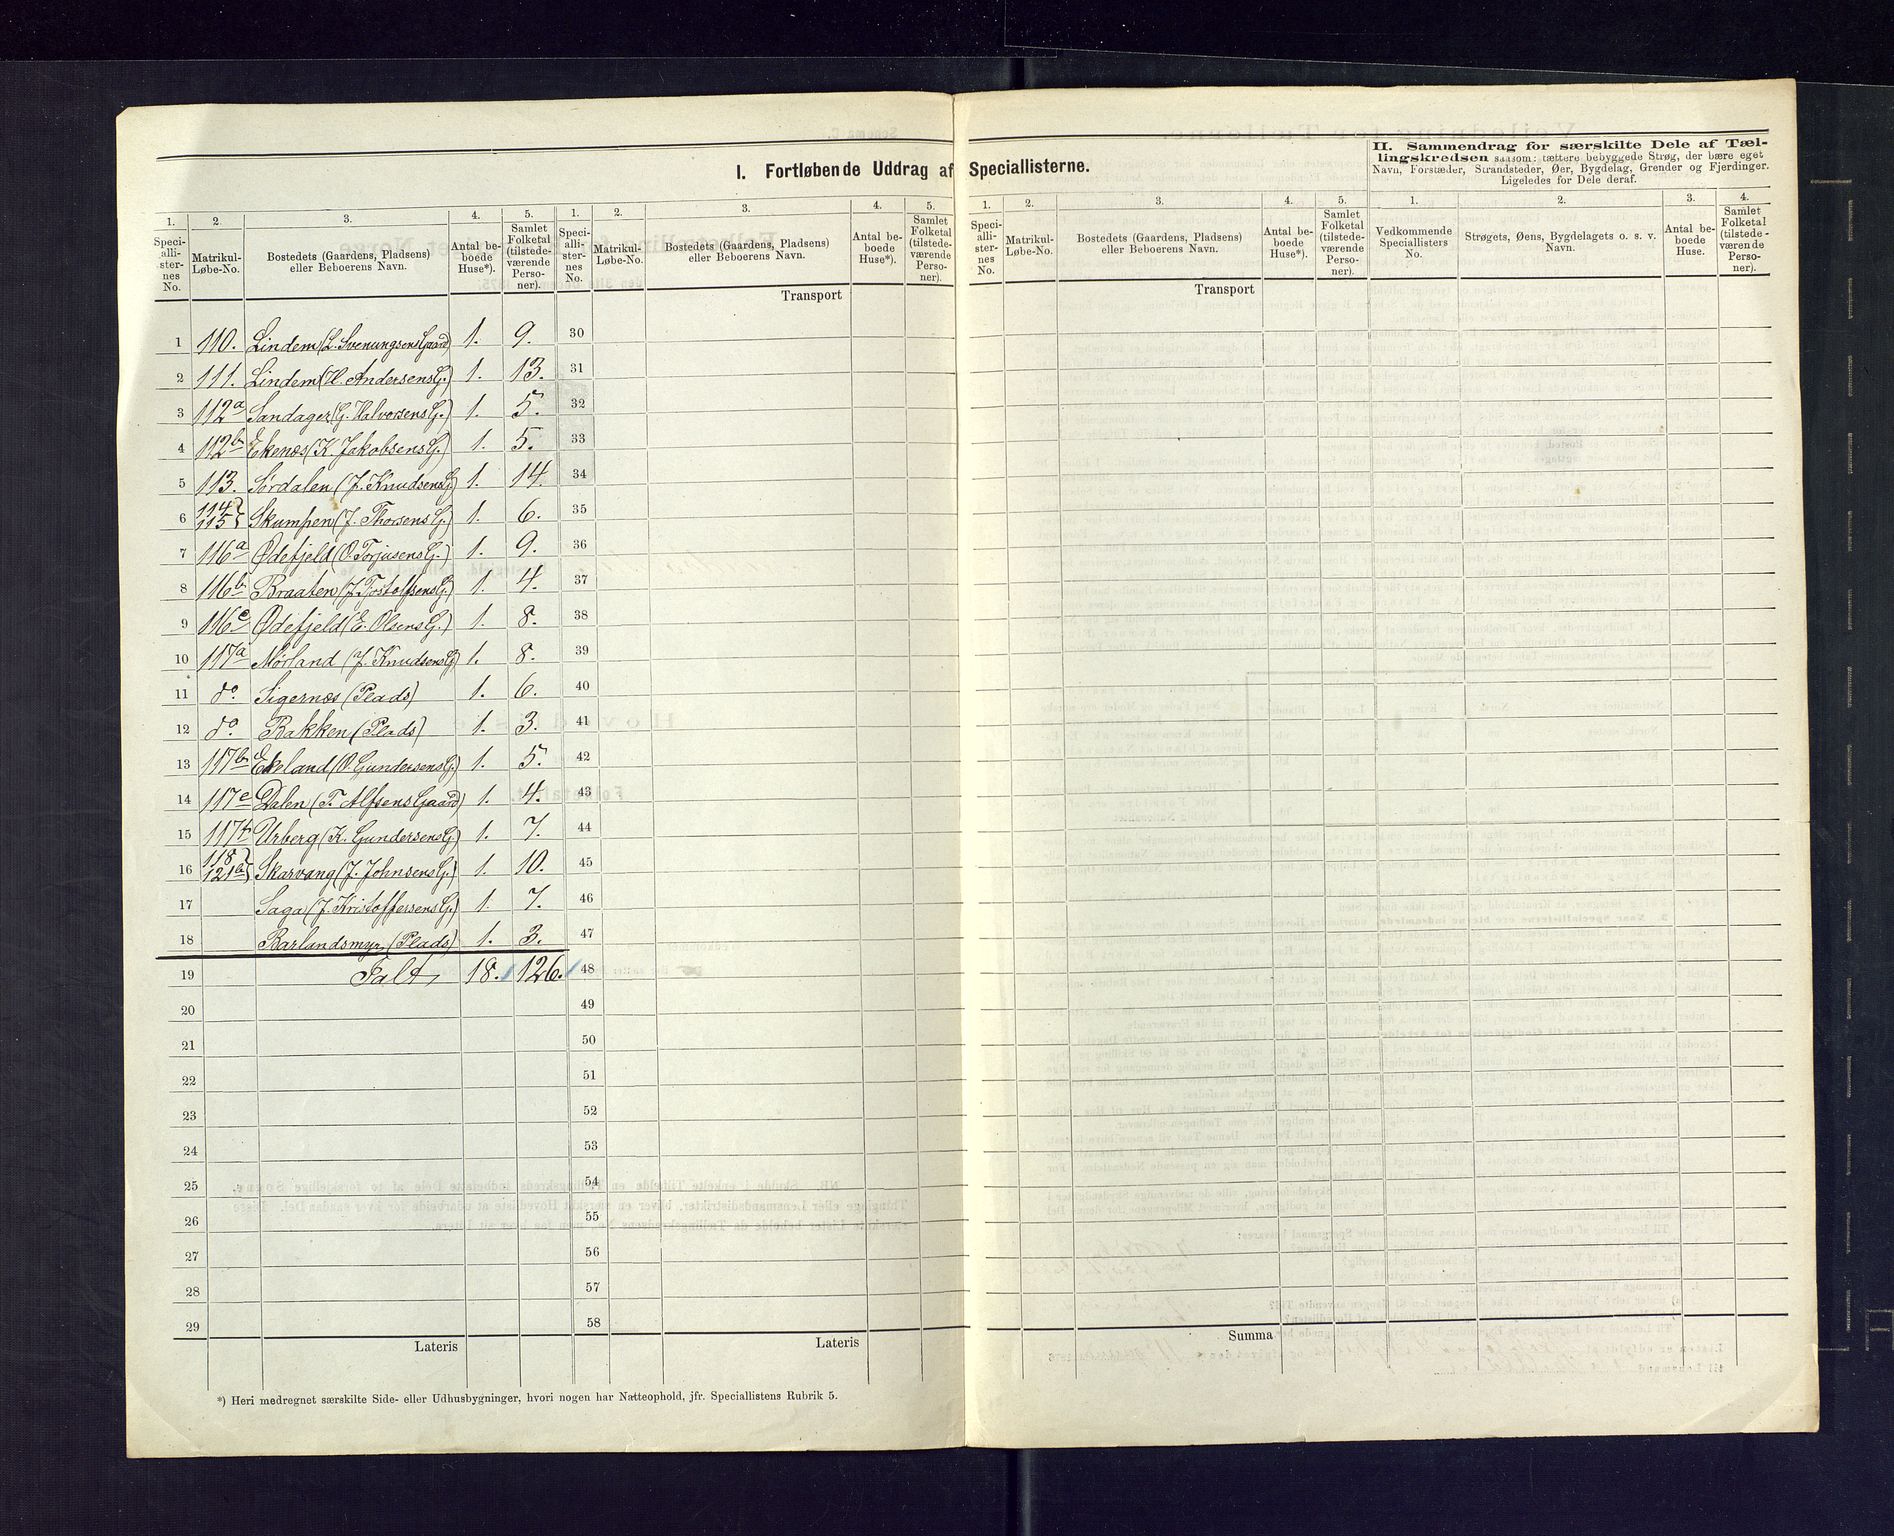 I. Fortløbende Uddrag af Speciallisterne.
II. Sammendrag for særskilte Dele af Tællingskredsen saasom: tættere bebyggede Strøg, der bære eget
Navn, Forstæder, Strandsteder, Øer, Bygdelag, Grender og Fjerdinger.
Ligeledes for Dele deraf.
1. 2 3. 4. 5. 1. 2. 3. 4. 5. 1. 2. 3. 4. 5. 1. 2. 3. 4.
Speciallisternes No. Matrikul-Løbe-No. Bostedets (Gaardens, Pladsens) eller Beboerens Navn. Antal beboede Huse*). Samlet Folketal (tilstedeværende Personer).
Speciallisternes No. Matrikul-Løbe-No. Bostedets (Gaardens, Pladsens) eller Beboerens Navn. Antal beboede Huse*). Samlet Folketal (tilstedeværende Personer).
Speciallisternes No. Matrikul-Løbe-No. Bostedets (Gaardens, Pladsens) eller Beboerens Navn. Antal beboede Huse*). Samlet Folketal (tilstedeværende Personer).
Vedkommende Speciallisters No. Strøgets, Øens, Bygdelagets o. s. v. Navn. Antal beboede Huse. Samlet Folketal (tilstedeværende Personer).
Transport Transport
1 110. Lindem (L. Svenungsens Gaard) 1. 9. 30
2 111. Lindem (H. Andersens G.) 1. 13. 31
3 112a Sandager (G. Halvorsens G.) 1. 5. 32
4 112b Ekenæs (K. Jakobsens G.) 1. 5. 33
5 113. Sørdalen (J. Knudsens G) 1. 14. 34
6 114 115} Skumpen (J. Thorsens G.) 1. 6. 35
7 116a Ødefjeld (O. Torjusens G.) 1. 9. 36
8 116b Braaten (J. Tostolfsens G.) 1. 4. 37
9 116c Ødefjeld (E. Olsens G.) 1. 8. 38
10 117a Mørland (J. Knudsens G) 1. 8. 39
11 do. Sigernæs (Plads) 1. 6. 40
12 do. Bakken (Plads) 1. 3. 41
13 117b Ekeland (O. Gundersens G.) 1. 5. 42
14 117e Dalen (T. Alfsens Gaard) 1. 4. 43
15 117f Urberg (K. Gundersens G.) 1. 7. 44
16 118 121b} Skarvang (J. Johnsens G.) 1. 10. 45
17 Saga (J. Kristoffersens G.) 1. 7. 46
18 Barlandsmyr (Plads) 1. 3. 47
19 Ialt 18. 126. 48
20 49
21 50
22 51
23 52
24 53
25 54
26 55
27 56
28 57
29 58
Lateris Lateris Summa
*) Heri medregnet særskilte Side- eller Udhusbygninger, hvori nogen har Natteophold, jfr. Speciallistens Rubrik 5.